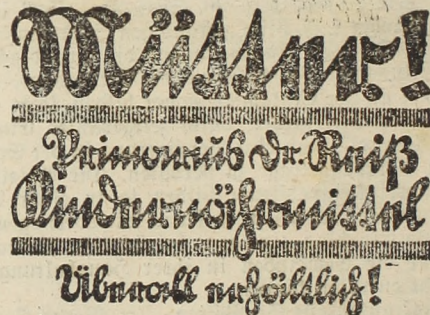 Mütter!
Primarius Dr. Reiß
Kindernährmittel
Überall erhältlich!